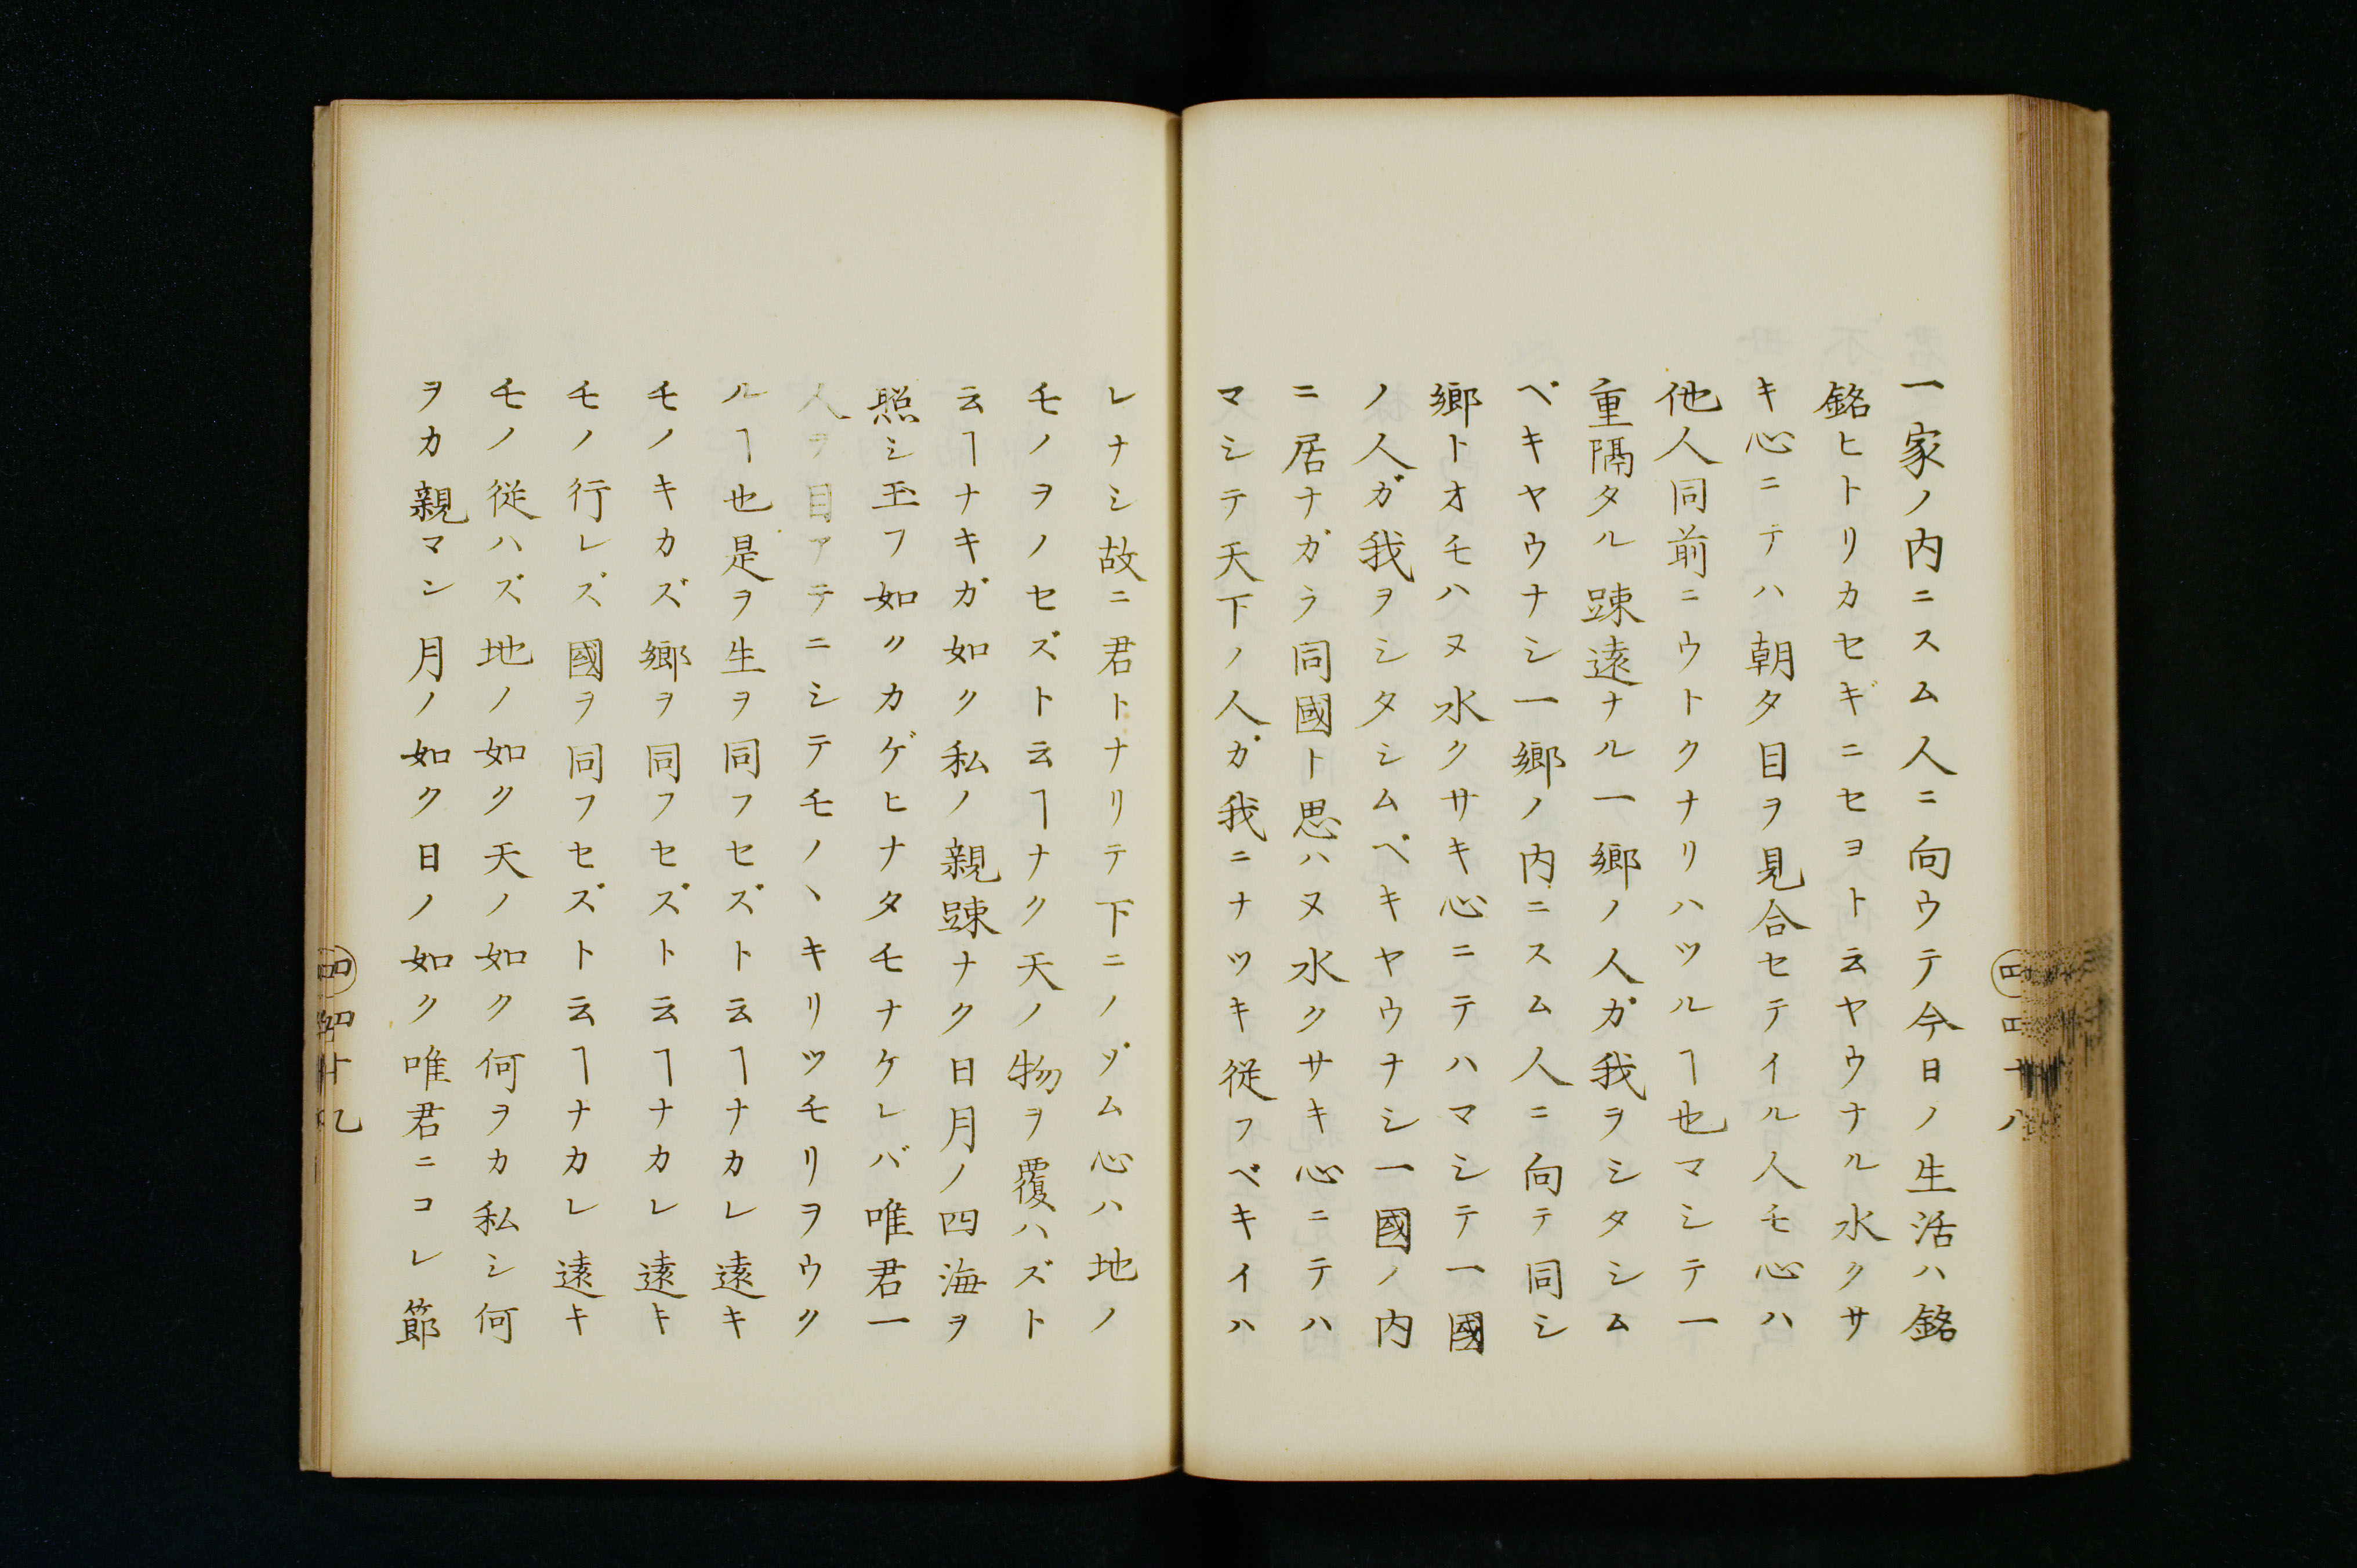 一家ノ内ニスム人ニ向ウテ今日ノ生活ハ銘
銘ヒトリカセギニセヨト云ヤウナル水クサ
キ心ニテハ朝タ目ヲ見合セテイル人モ心ハ
他人同前ニウトクナリハツルヿ也マシテ一
重隔タル踈遠ナル一郷ノ人ガ我ヲシタシム
ベキヤウナシ一郷ノ内ニスム人ニ向テ同シ
郷トオモハヌ水クサキ心ニテハマシテ一國
ノ人ガ我ヲシタシムベキヤウナシ一國ノ内
ニ居ナガラ同國ト思ハヌ水クサキ心ニテハ
マシテ天下ノ人ガ我ニナツキ從フベキイハ
四
四十八
レナシ故ニ君トナリテ下ニノゾム心ハ地ノ
モノヲノセズト云ヿナク天ノ物ヲ覆ハズト
云ヿナキガ如ク私ノ親踈ナク日月ノ四海ヲ
照シ玉フ如クカゲヒナタモナケレバ唯君一
人ヲ目アテニシテモノヽキリツモリヲウク
ルヿ也是ヲ生ヲ同フセズト云ヿナカレ遠キ
モノキカズ郷ヲ同フセズト云ヿナカレ遠キ
モノ行レズ國ヲ同フセズト云ヿナカレ遠キ
モノ從ハズ地ノ如ク天ノ如ク何ヲカ私シ何
ヲカ親マン月ノ如ク日ノ如ク唯君ニコレ節
四
四十九